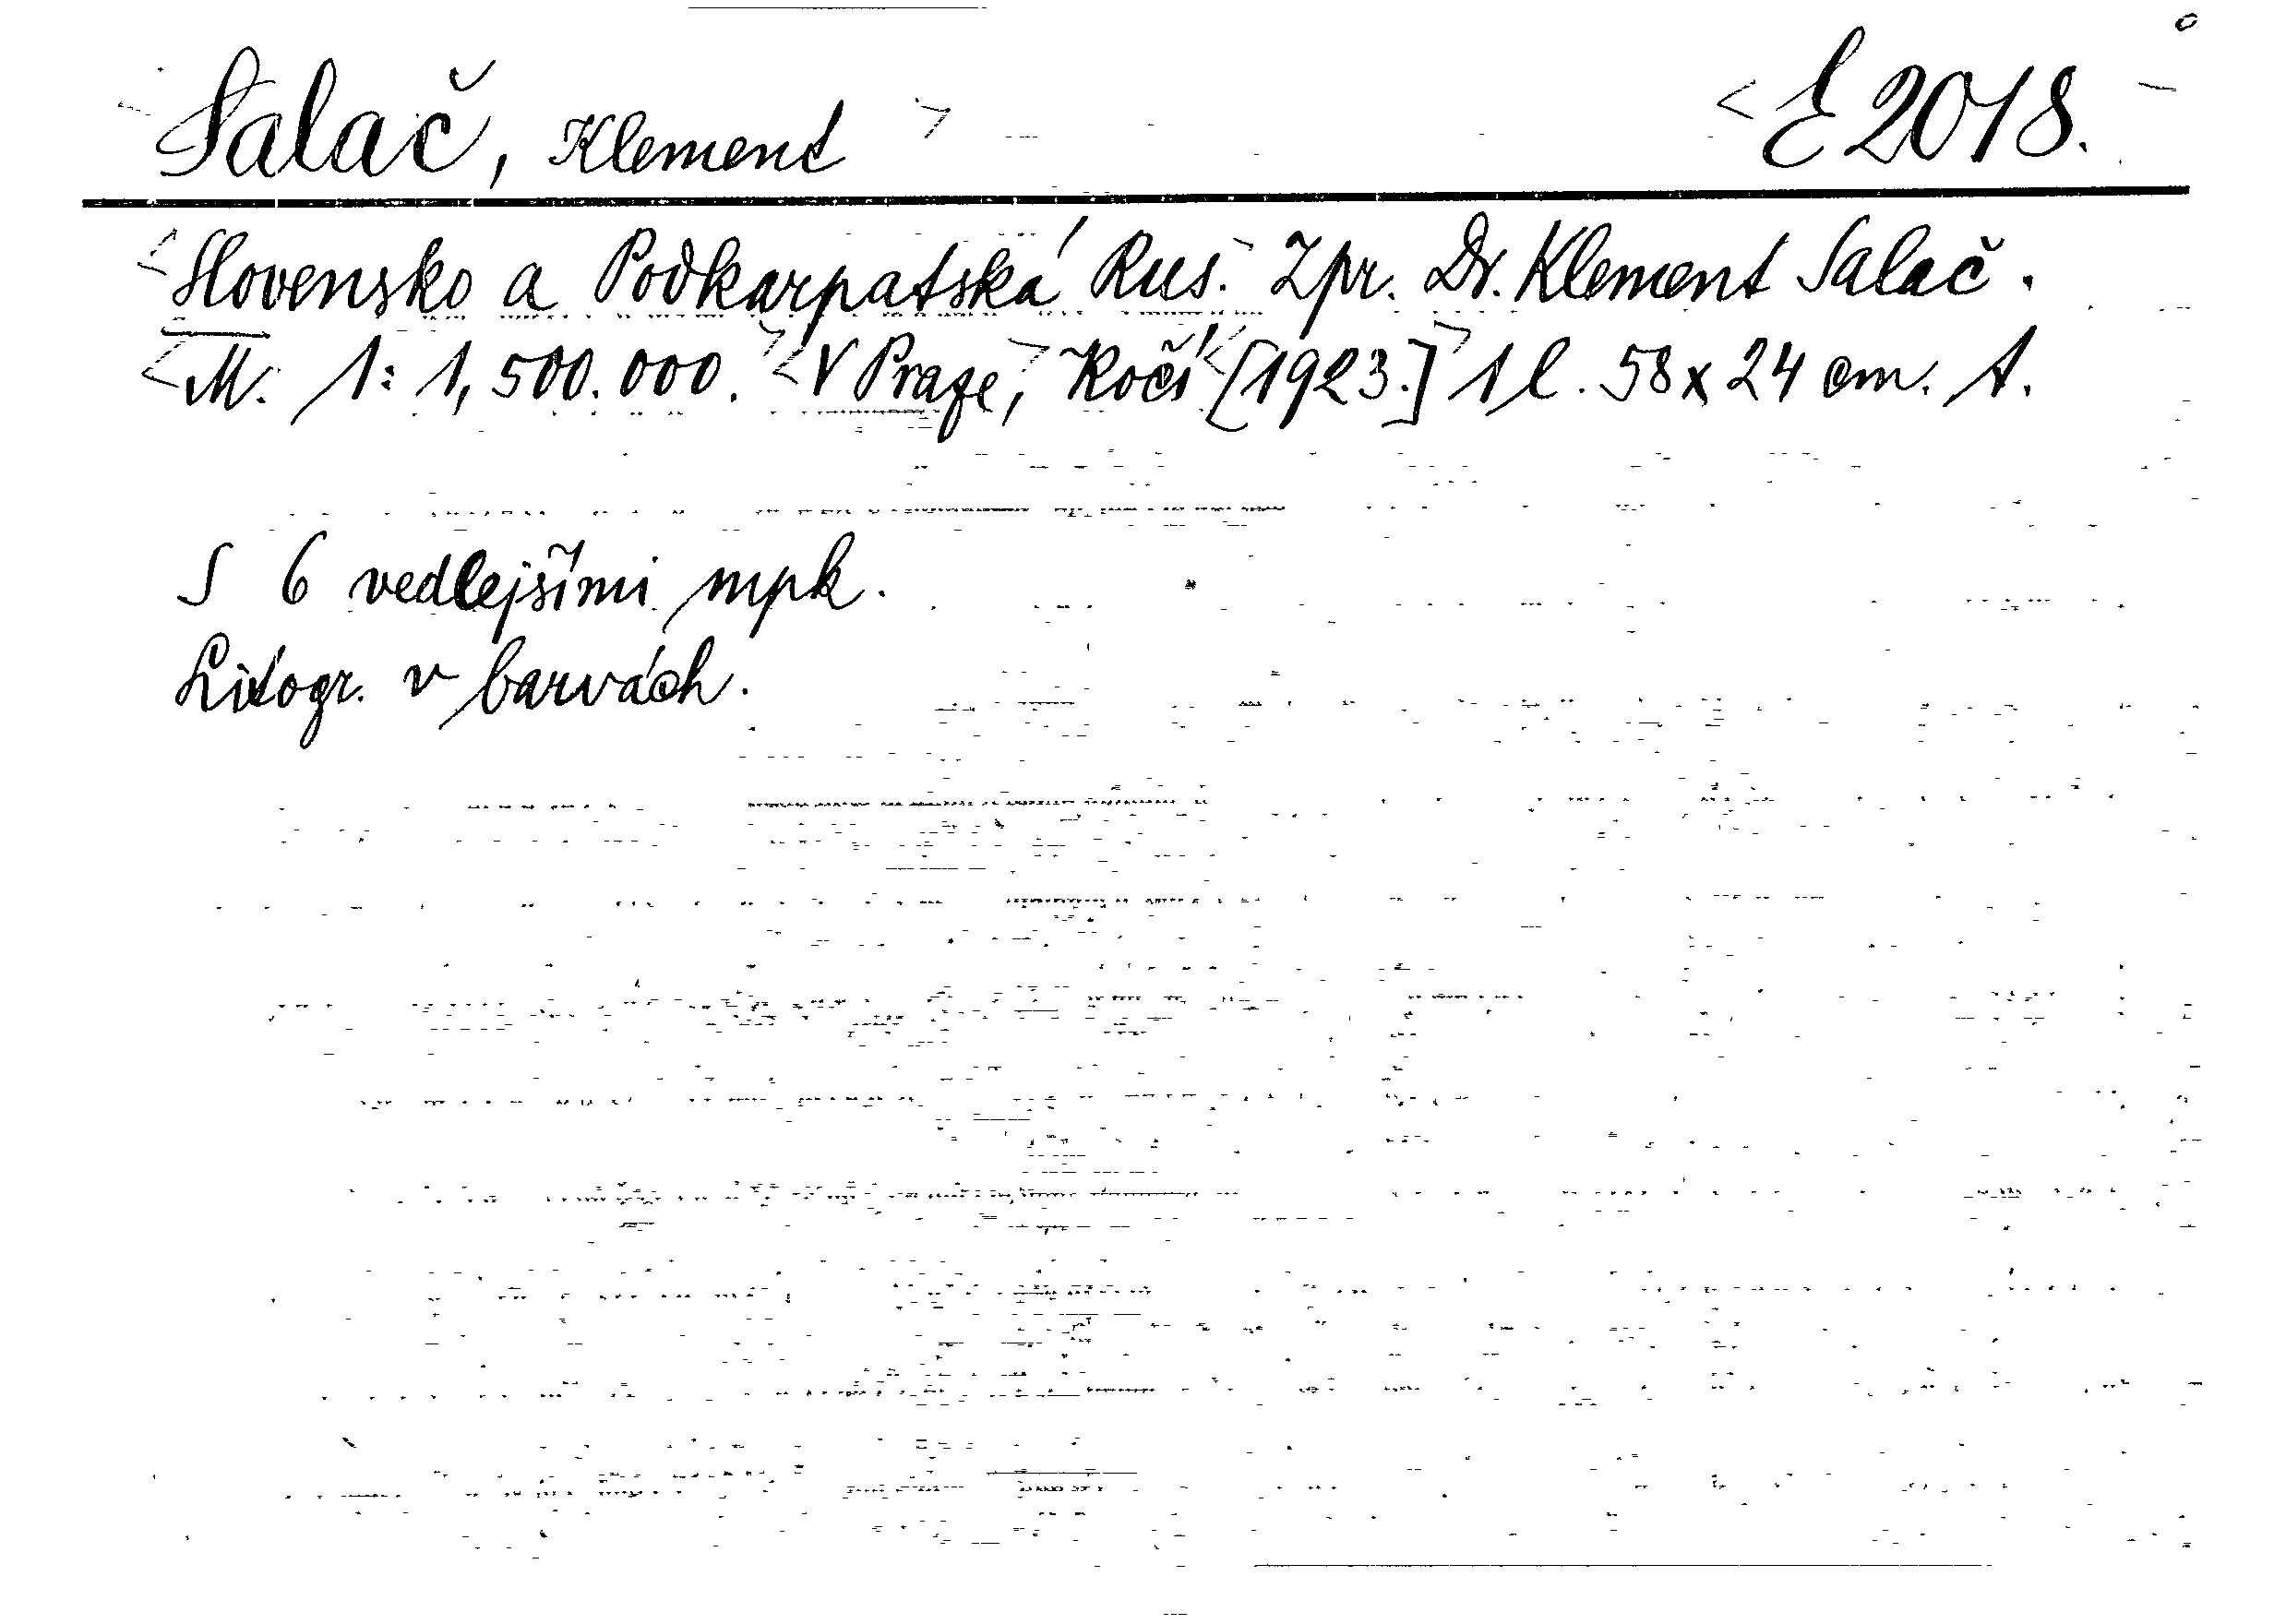 Salač, Klement E 2018.
Slovensko a Podkarpatská Rus. Zpr. Dr. Klement Salač.
M. 1:1,500.000. V Praze, Kočí [1923.] 1 l. 58 x 24 cm. A.
S 6 vedlejšími mpk.
Litogr. v barvách.